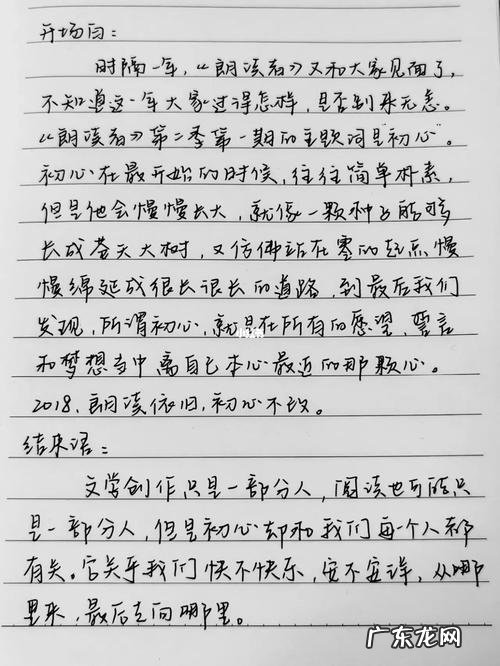 开场白：
时隔一年，《朗读者》又和大家见面了，
不知道这一年大家过得怎样，是否别来无恙。
《朗读者》第二季第一期的主题词是"初心"。
初心在最开始的时候，往往简单朴素，
但是他会慢慢长大，就像一颗种子能够
长成苍天大树，又仿佛站在零的起点慢
慢绵延成很长很长的道路，到最后我们
发现，所谓初心，就是在所有的愿望、誓言
和梦想当中离自己本心最近的那颗心。
2018，朗读依旧，初心不改。
结束语：
文学创作只是一部分人，阅读也可能只
是一部分人，但是初心却和我们每一个人都
有关。它关乎我们快不快乐，安不安详，从哪
里来，最后走向哪里。
广东龙网